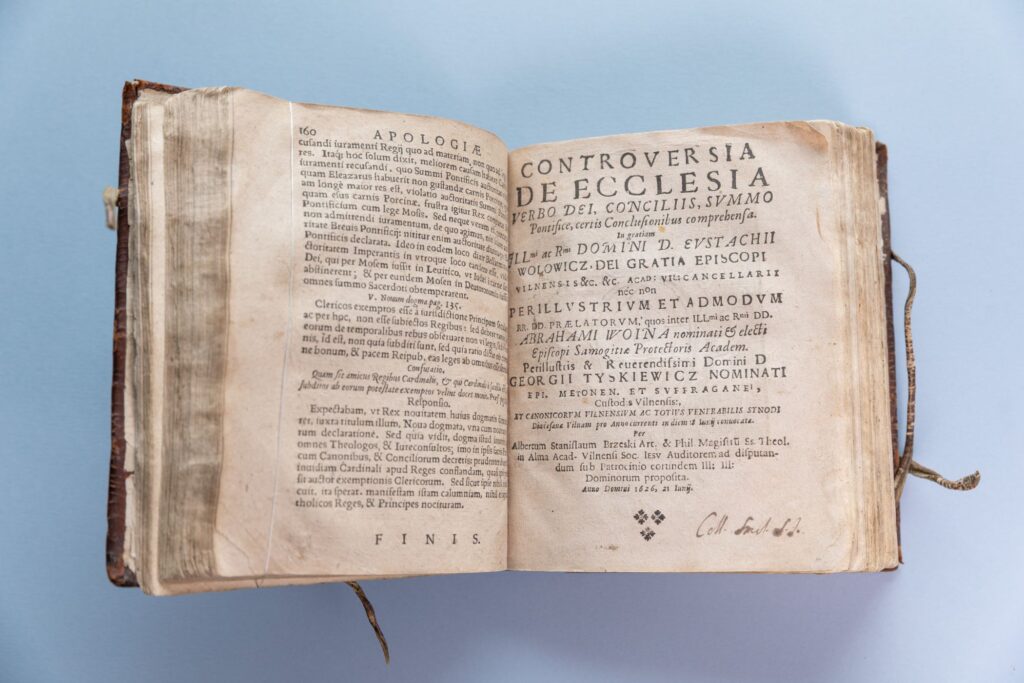 160
APOLOGIÆ
cusandi iuramenti Regij quo ad materiam, non quod ad
res. Itaq; hoc solum dixit, meliorem causam habere
iuramenti recusandi, quo Summi Pontificis auctoritas
quam Eleazarus habuerit non gustandæ carnis Porcinæ
am longè maior res est, violatio auctoritatis Summi
quam esus carnis Porcinæ. frustra igitur Rex
Pontificium cum lege Mosis. Sed neque verum est
non admittendi iuramentum, de quo agimus, niti
ritate Breuis Pontificij: nititur enim auctoritate
Pontificis declarata. Ideo in eodem loco dixit
ctoritatem Imperantis in vtroque loco eandem esse
Dei, qui per Mosem iussit in Leuitico, vt Iudæi
abstinerent; & per eundem Mosen in Deuteronomio
omnes summo Sacerdoti obtemperarent.
V. Nouum dogma pag. 135.
Clericos exemptos esse à iurisdictione Principum
ac per hoc, non esse subiectos Regibus: sed debere
eorum de temporalibus rebus obseruare non vi legis, sed
nis, id est, non quia subditi sunt, sed quia ratio dictat
ne bonum, & pacem Reipub, eas leges ab omnibus
Confutatio.
Quam sit amicus Regibus Cardinalis, & qui Cardinali
subditos ab eorum potestate exemptos velint docet
Responsio.
Expectabam, vt Rex nouitatem huius dogmatis
ret, iuxta titulum illum, Noua dogmata, vna cum
rum declaratione. Sed quia vidit, dogma istud
omnes Theologos, & Iureconsultos; imo in ipsis
cum Canonibus, & Conciliorum decretis; prudenter
inuidiam Cardinali apud Reges conflandam, quasi
sit auctor exemptionis Clericorum. Sed sicut spse nihil
cuit, ita sperat, manifestam istam calumniam, nihil
tholicos Reges, & Principes nocituram.
FINIS.
CONTROVERSIA
DE ECCLESIA
VERBO DEI, CONCILIIS, SVMMO
Pontifice, certis Conclusionibus comprehensa.
In gratiam
ILLmi ac Rmi DOMINI D. EVSTACHII
WOLOWICZ, DEI GRATIA EPISCOPI
VILNENSIS &c. &c. ACAD: VIL: CANCELLARII
nec non
PERILLVSTRIVM ET ADMODVM
RR. DD. PRÆLATORVM, quos inter ILLmi ac Rmi DD.
ABRAHAMI WOINA nominati & electi
Episcopi Samogitiæ Protectoris Academ.
Perillustris & Reuerendissimi Domini D
GEORGII TYSKIEWICZ NOMINATI
EPI. METONEN. ET SVFFRAGANEI,
Custodis Vilnensis:
ET CANONICORVM VILNENSIVM AC TOTIVS VENERABILIS SYNODI
Diœcesanæ Vilnam pro Anno currenti in diem 18 Iunij conuocatæ.
Per
Albertum Stanislaum Brzeski Art. & Phil. Magistrũ Ss. Theol.
in Alma Acad. Vilnensi Soc. Iesv Auditorem ad disputan-
dum sub Patrocinio eorundem Ill: Ill:
Dominorum proposita.
Anno Domini 1626, 21 Iunij.
Coll. S. J.